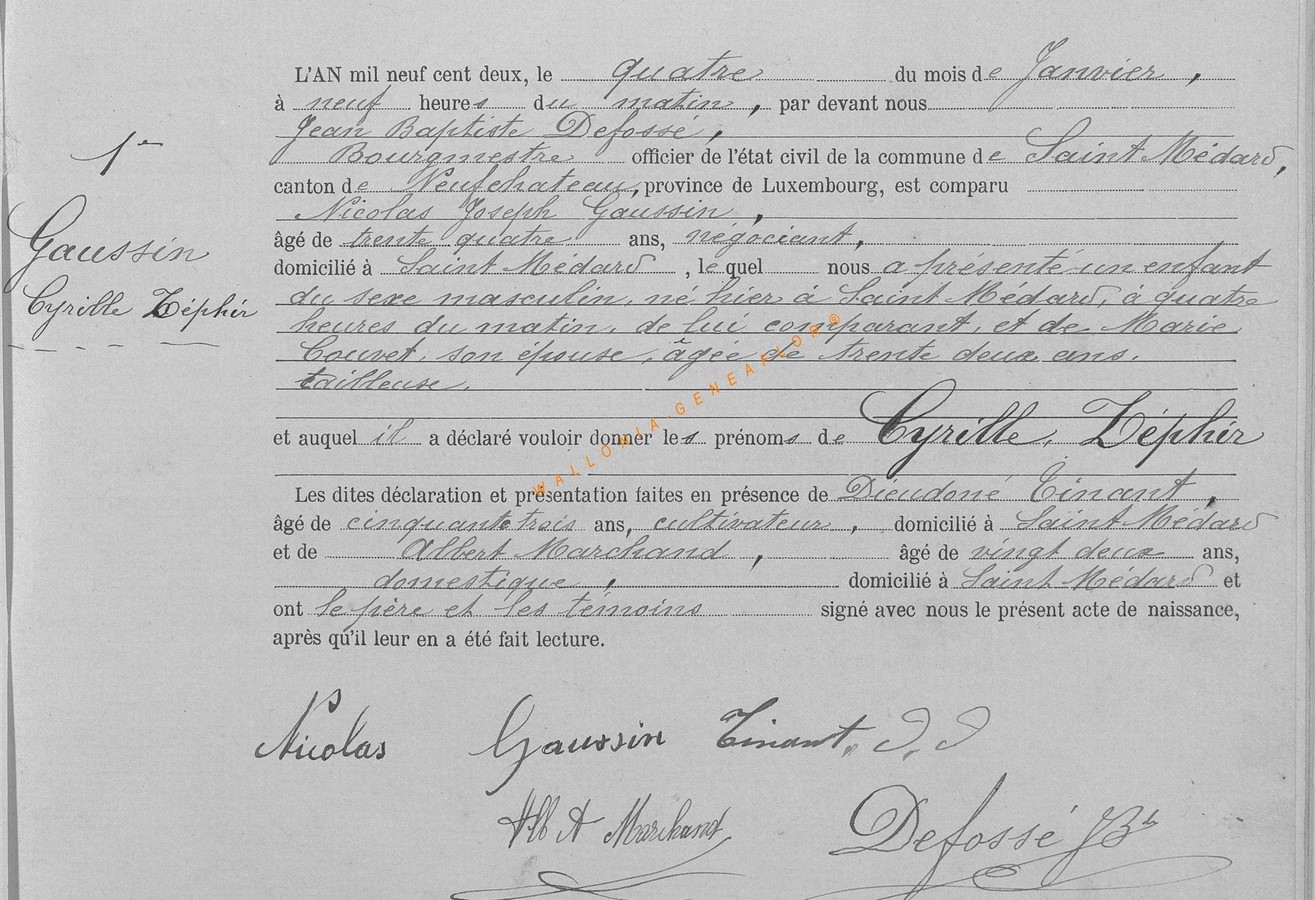 L'AN mil neuf cent deux, le quatre du mois de Janvier,
à neuf heures du matin, par devant nous
Jean Baptiste Defossé,
Bourgmestre officier de l'état civil de la commune de Saint Médard,
canton de Neufchateau, province de Luxembourg, est comparu
Nicolas Joseph Gaussin,
âgé de trente quatre ans, négociant,
domicilié à Saint Médard, lequel nous a présenté un enfant
du sexe masculin, né hier à Saint Médard, à quatre
heures du matin, de lui comparant, et de Marie
Couvet, son épouse, âgée de trente deux ans.
tailleuse.
et auquel il a déclaré vouloir donner les prénoms de Cyrille, Zéphir
Les dites déclaration et présentation faites en présence de Dieudoné Tinant,
âgé de cinquante trois ans, cultivateur, domicilié à Saint Médard
et de Albert Marchand, âgé de vingt deux ans,
domestique, domicilié à Saint Médard et
ont le père et les témoins signé avec nous le présent acte de naissance,
après qu'il leur en a été fait lecture.
1e
Gaussin
Cyrille Zéphir
Nicolas Gaussin Tinant, D. D
Alb A Marchand Defossé JBte
WALLONIA-GENEAFLOR®